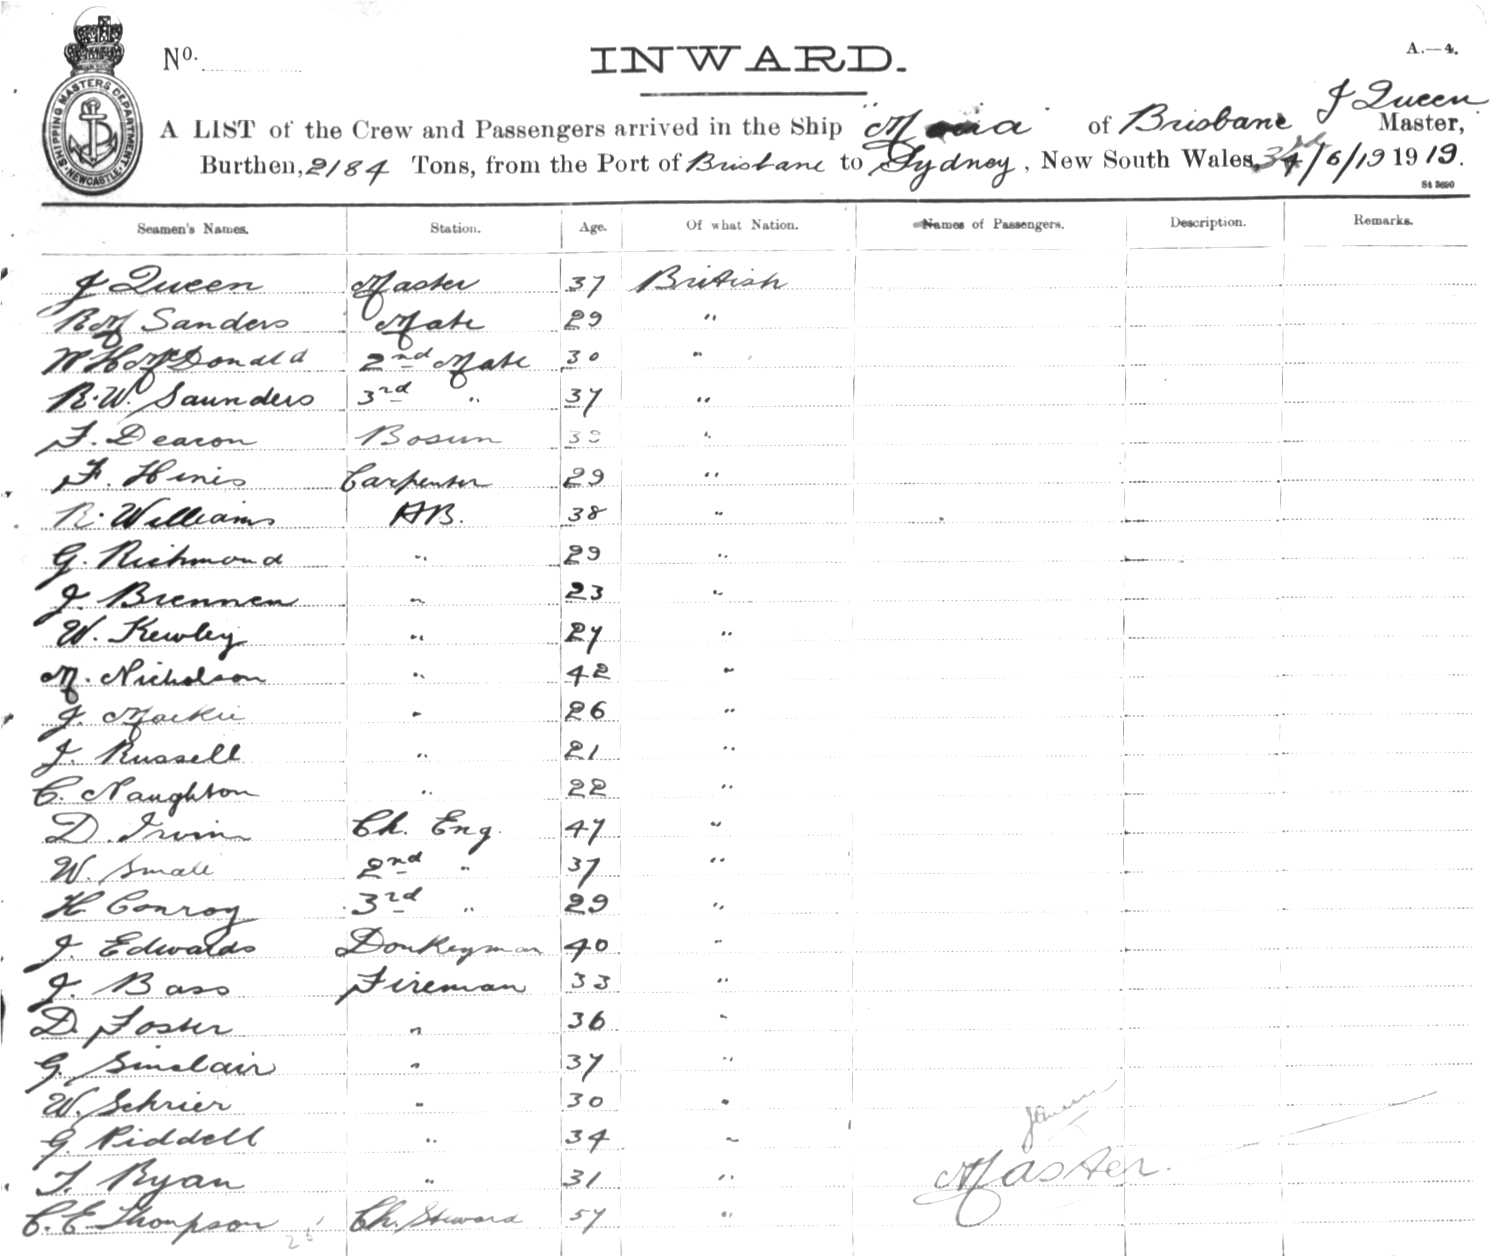 No.
INWARD.
A.—4.
SHIPPING MASTERS DEPARTMENT
NEWCASTLE
J Queen
A LIST of the Crew and Passengers arrived in the Ship " " of Brisbane Master,
Burthen, 2184 Tons, from the Port of Brisbane to Sydney, New South Wales, /6/19 1919.
St 3690
Seamen's Names. Station. Age. Of what Nation. Names of Passengers. Description. Remarks.
J Queen Master 37 British
R M Sanders Mate 29 "
W H McDonald 2nd Mate 30 "
R. W. Saunders 3rd " 37 "
F. Deacon Bosun "
F. Hinis Carpenter 29 "
R. Williams AB. 38 "
G. Richmond " 29 "
J. Brennen " 23 "
W. Kewley " 27 "
M. Nicholson " 42 "
J. Mackie " 26 "
J. Russell " 21 "
C. Naughton " 22 "
D. Irvin Ch. Eng. 47 "
W. Small 2nd " 37 "
H Conroy 3rd " 29 "
J. Edwards Donkeyman 40 "
J. Bass Fireman 33 "
D. Foster " 36 "
G. Sinclair " 37 "
W. Schrier " 30 "
G. Riddell " 34 "
T. Ryan " 31 "
Master.
C. E. Thompson Ch. Steward 57 "